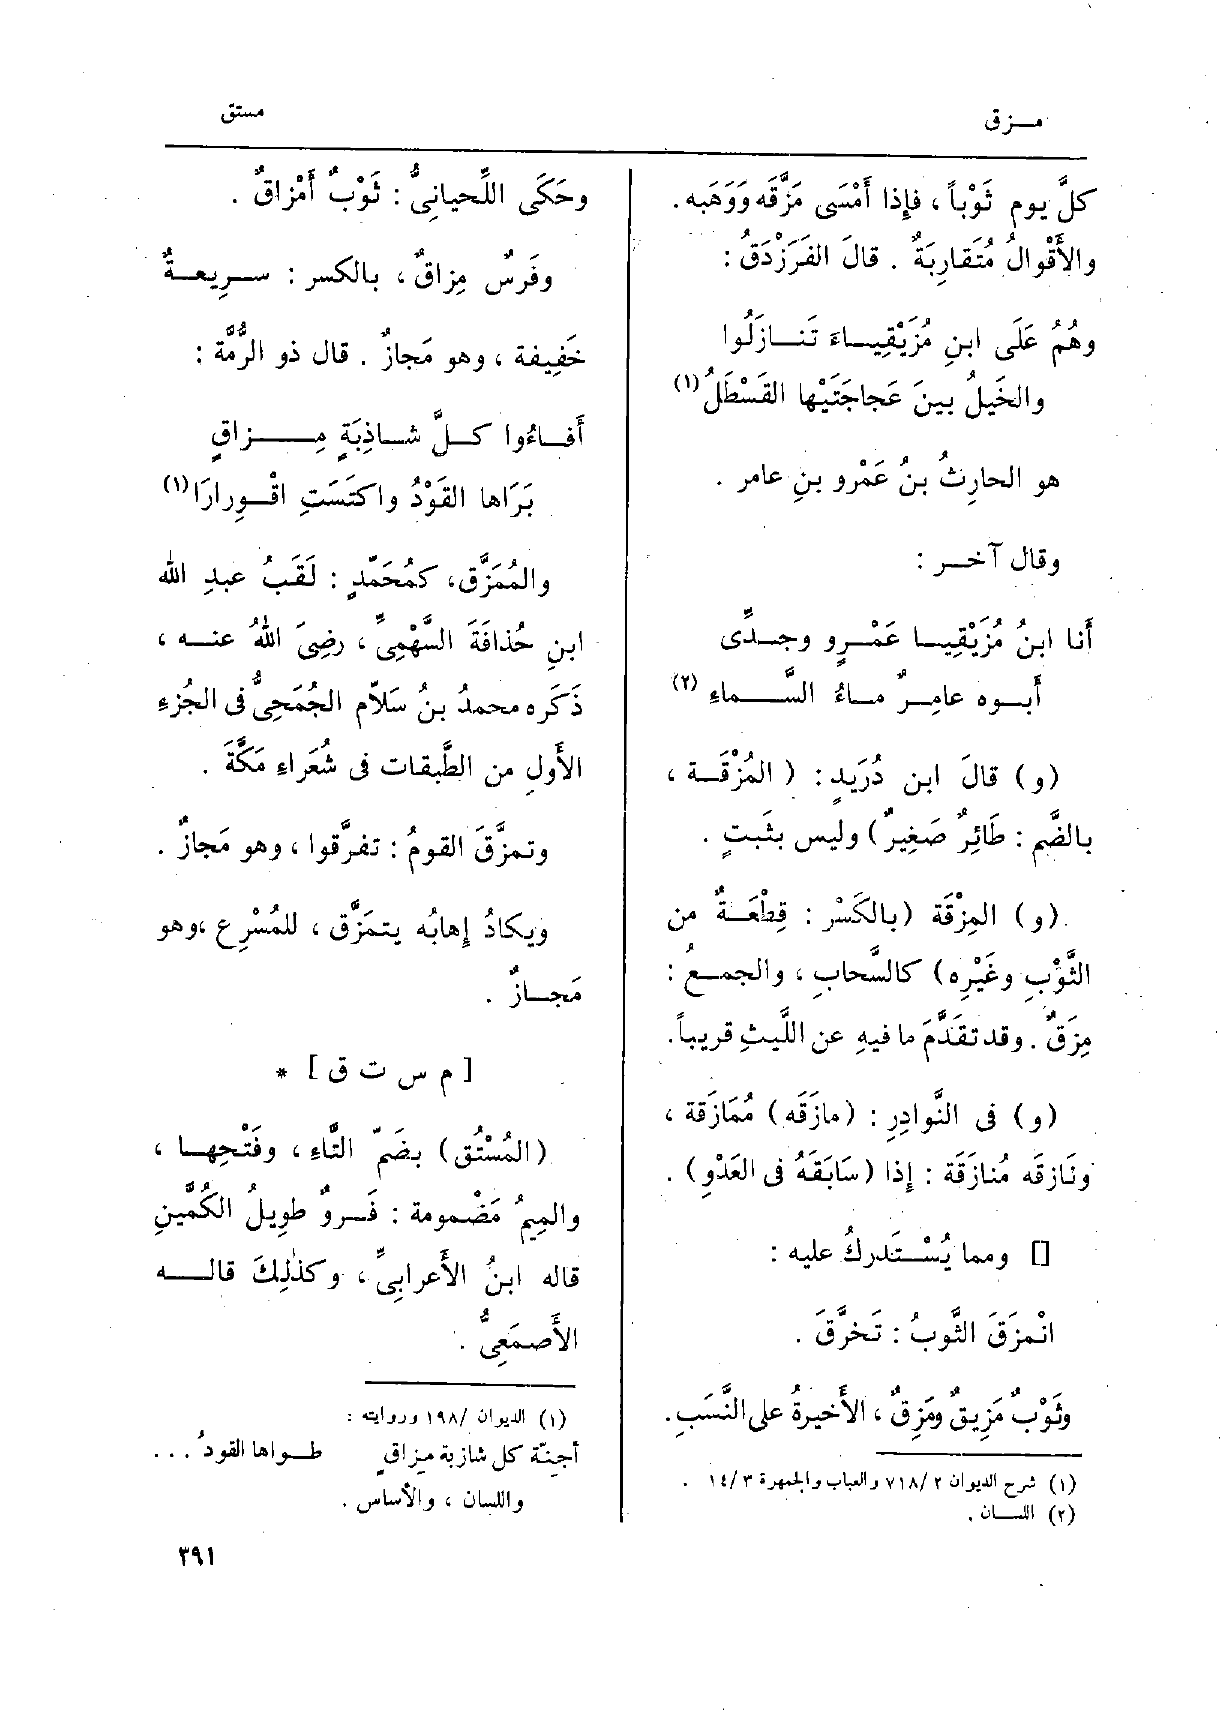 مـزق
مستق
كلَّ يوم ثَوْباً ، فإِذا أَمْسَى مَزَّقَه وَوَهَبه .
والأَقْوالُ مُتَقاربَةٌ . قالَ الفَرَزْدَقُ :
وهُمُ عَلَى ابنِ مُزَيْقِيـاءَ تَنـازَلُوا
والخَيلُ بينَ عَجاجَتَيْها القَسْطَلُ (١)
هو الحارِثُ بنُ عَمْرو بنِ عامر .
وقال آخـر :
أَنا ابنُ مُزَيْقِيـا عَمْرٍو وجـدِّى
أَبـوه عامِـرٌ مـاءُ السَّـماءِ (٢)
(و) قالَ ابن دُرَيدٍ : ( المُزْقَـة ،
بالضَّم : طَائِرٌ صَغِيرٌ) وليس بثَبتٍ .
(و) المِزْقَة (بالكَسْر : قِطْعَـةٌ من
الثَّوْبِ وغَيْرِه) كالسَّحابِ ، والجمـعُ :
مِزَقٌ . وقد تقدَّمَ ما فيهِ عن اللَّيثِ قريباً.
(و) فى النَّوادِرِ : (مازَقَه) مُمَازَقة ،
ونَازقَه مُنازَقَة : إِذا (سَابَقَهُ فى العَدْوِ) .
[] ومما يُسْـتَدركُ عليه :
انْمزَقَ الثَّوبُ : تَخرَّقَ .
وثَوْبٌ مَزِيقٌ ومَزِقٌ ، الأَخيرةُ على النَّسَبِ.
(١) شرح الديوان ٢ /٧١٨ والعباب والجمهرة ٣ /١٤ .
(٢) اللسـان .
وحَكَى اللِّحيانِىُّ : ثَوْبٌ أَمْزاقٌ .
وفَرَسٌ مِزاقٌ ، بالكسر : سـرِيعـةٌ
خَفِيفة ، وهو مَجازٌ . قال ذو الرُّمَّة :
أَفـاءُوا كـلَّ شـاذِبَةٍ مِـزاقٍ
بَرَاها القَوْدُ واكتَسَتِ اقْـوِرارَا (١)
والمُمَزَّق، كمُحَمّدٍ : لَقَبُ عبدِ الله
ابنِ حُذافَةَ السَّهْمِىِّ ، رضِىَ اللهُ عنـه ،
ذَكَره محمدُ بنُ سَلاّم الجُمَحِىُّ فى الجُزءِ
الأَولِ من الطَّبقات فى شُعَراءِ مَكَّةَ .
وتمزَّقَ القومُ : تفرَّقوا ، وهو مَجازٌ .
ويكادُ إِهابُه يتمَزَّق ، للمُسْرِع ،وهو
مَجـازٌ .
[ م س ت ق ] *
(المُسْتُق) بضَمّ التَّاءِ ، وفَتْحِهـا ،
والمِيمُ مَضْمومة : فَـروٌ طويلُ الكُمَّينِ
قاله ابنُ الأَعرابِىِّ ، وكذٰلِكَ قالـه
الأَصمَعِىُّ .
(١) الديوان /١٩٨ وروايته :
أجِنّة كل شازبة مِزاقٍ طـواها القودُ ...
واللسان ، والأساس .
٣٩١